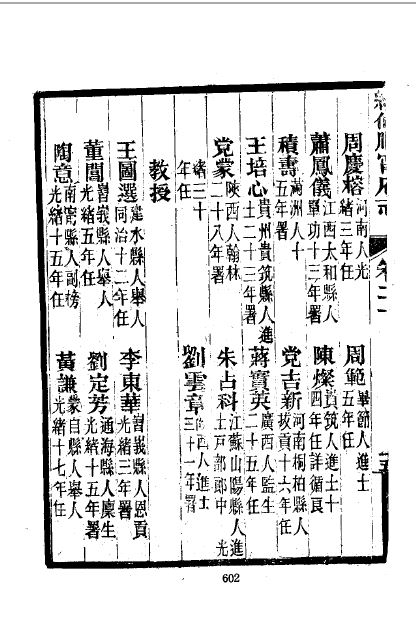 周慶榕 河南人光緒三年任 周範 畢節人進士五年任
蕭鳳儀 江西太和縣人軍功十三年署 陳燦 貴筑人進士十四年任詳循良
積壽 滿洲人十五年署 党吉新 河南桐柏縣人拔貢十六年任
王培心 貴州貴筑縣人進士二十三年署 蔣寶英 廣西人監生二十五年任
党蒙 陝西人翰林二十八年署 朱占科 江蘇山陽縣人進士戶部郎中光
緒三十年任 劉雲章 西人進士三十一年署
教授
王國選 建水縣人舉人同治十二年任 李東華 嶍峩縣人恩貢光緒三年署
董聞 嶍峩縣人舉人光緒五年任 劉定芳 通海縣人廩生光緒十五年署
陶意 南甯縣人副榜光緒十五年任 黃謙 蒙自縣人舉人光緒十七年任
602